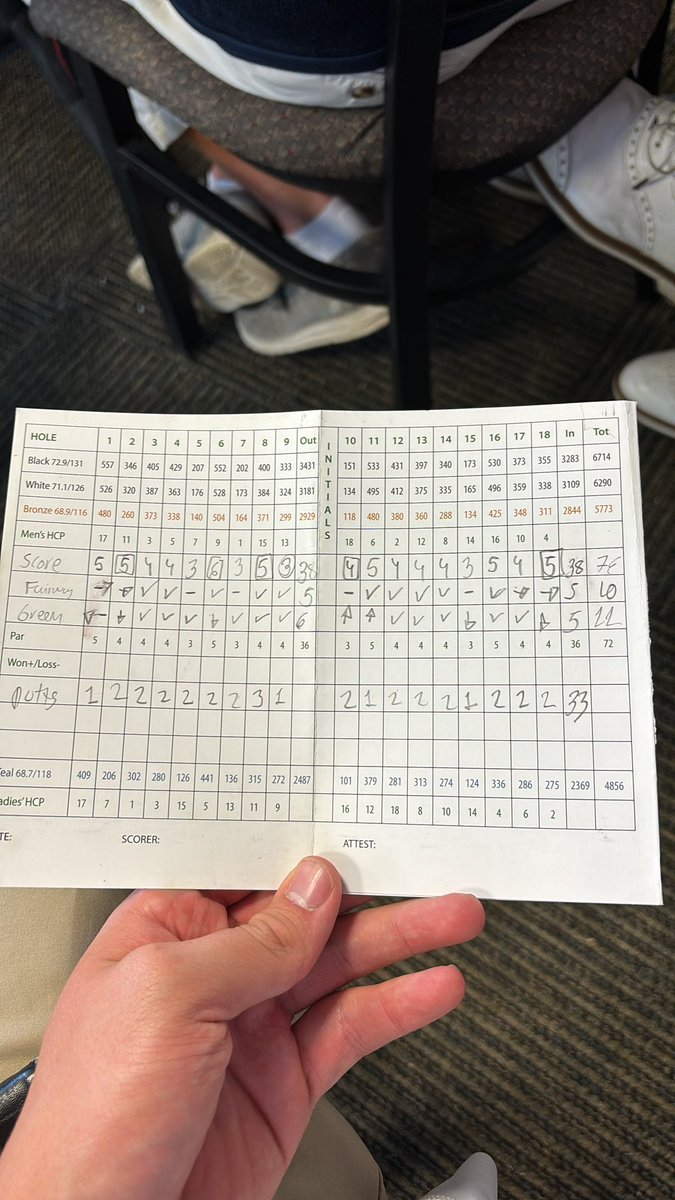 HOLE 1 2 3 4 5 6 7 8 9 Out INITIALS 10 11 12 13 14 15 16 17 18 In Tot
Black 72.9/131 557 346 405 429 207 552 202 400 333 3431 151 533 431 397 340 173 530 373 355 3283 6714
White 71.1/126 526 320 387 363 176 528 173 384 324 3181 134 495 412 375 335 165 496 359 338 3109 6290
Bronze 68.9/116 480 260 373 338 140 504 164 371 299 2929 118 480 380 360 288 134 425 348 311 2844 5773
Men's HCP 17 11 3 5 7 9 1 15 13 18 6 2 12 8 14 16 10 4
Score 5 5 4 4 3 6 3 5 3 38 4 5 4 4 4 3 5 4 5 38 76
Fairway → → ✓ ✓ - ✓ - ✓ ✓ 5 - ✓ ✓ ✓ ✓ - ✓ → → 5 10
Green ✓ ✓ ✓ ✓ ✓ ✓ 6 ↑ ↑ ✓ ✓ ✓ ✓ ✓ 5 11
Par 5 4 4 4 3 5 3 4 4 36 3 5 4 4 4 3 5 4 4 36 72
Won+/Loss-
Putts 1 2 2 2 2 2 2 3 1 2 1 2 2 2 1 2 2 2 33
eal 68.7/118 409 206 302 280 126 441 136 315 272 2487 101 379 281 313 274 124 336 286 275 2369 4856
adies' HCP 17 7 1 3 15 5 13 11 9 16 12 18 8 10 14 4 6 2
TE: SCORER: ATTEST: